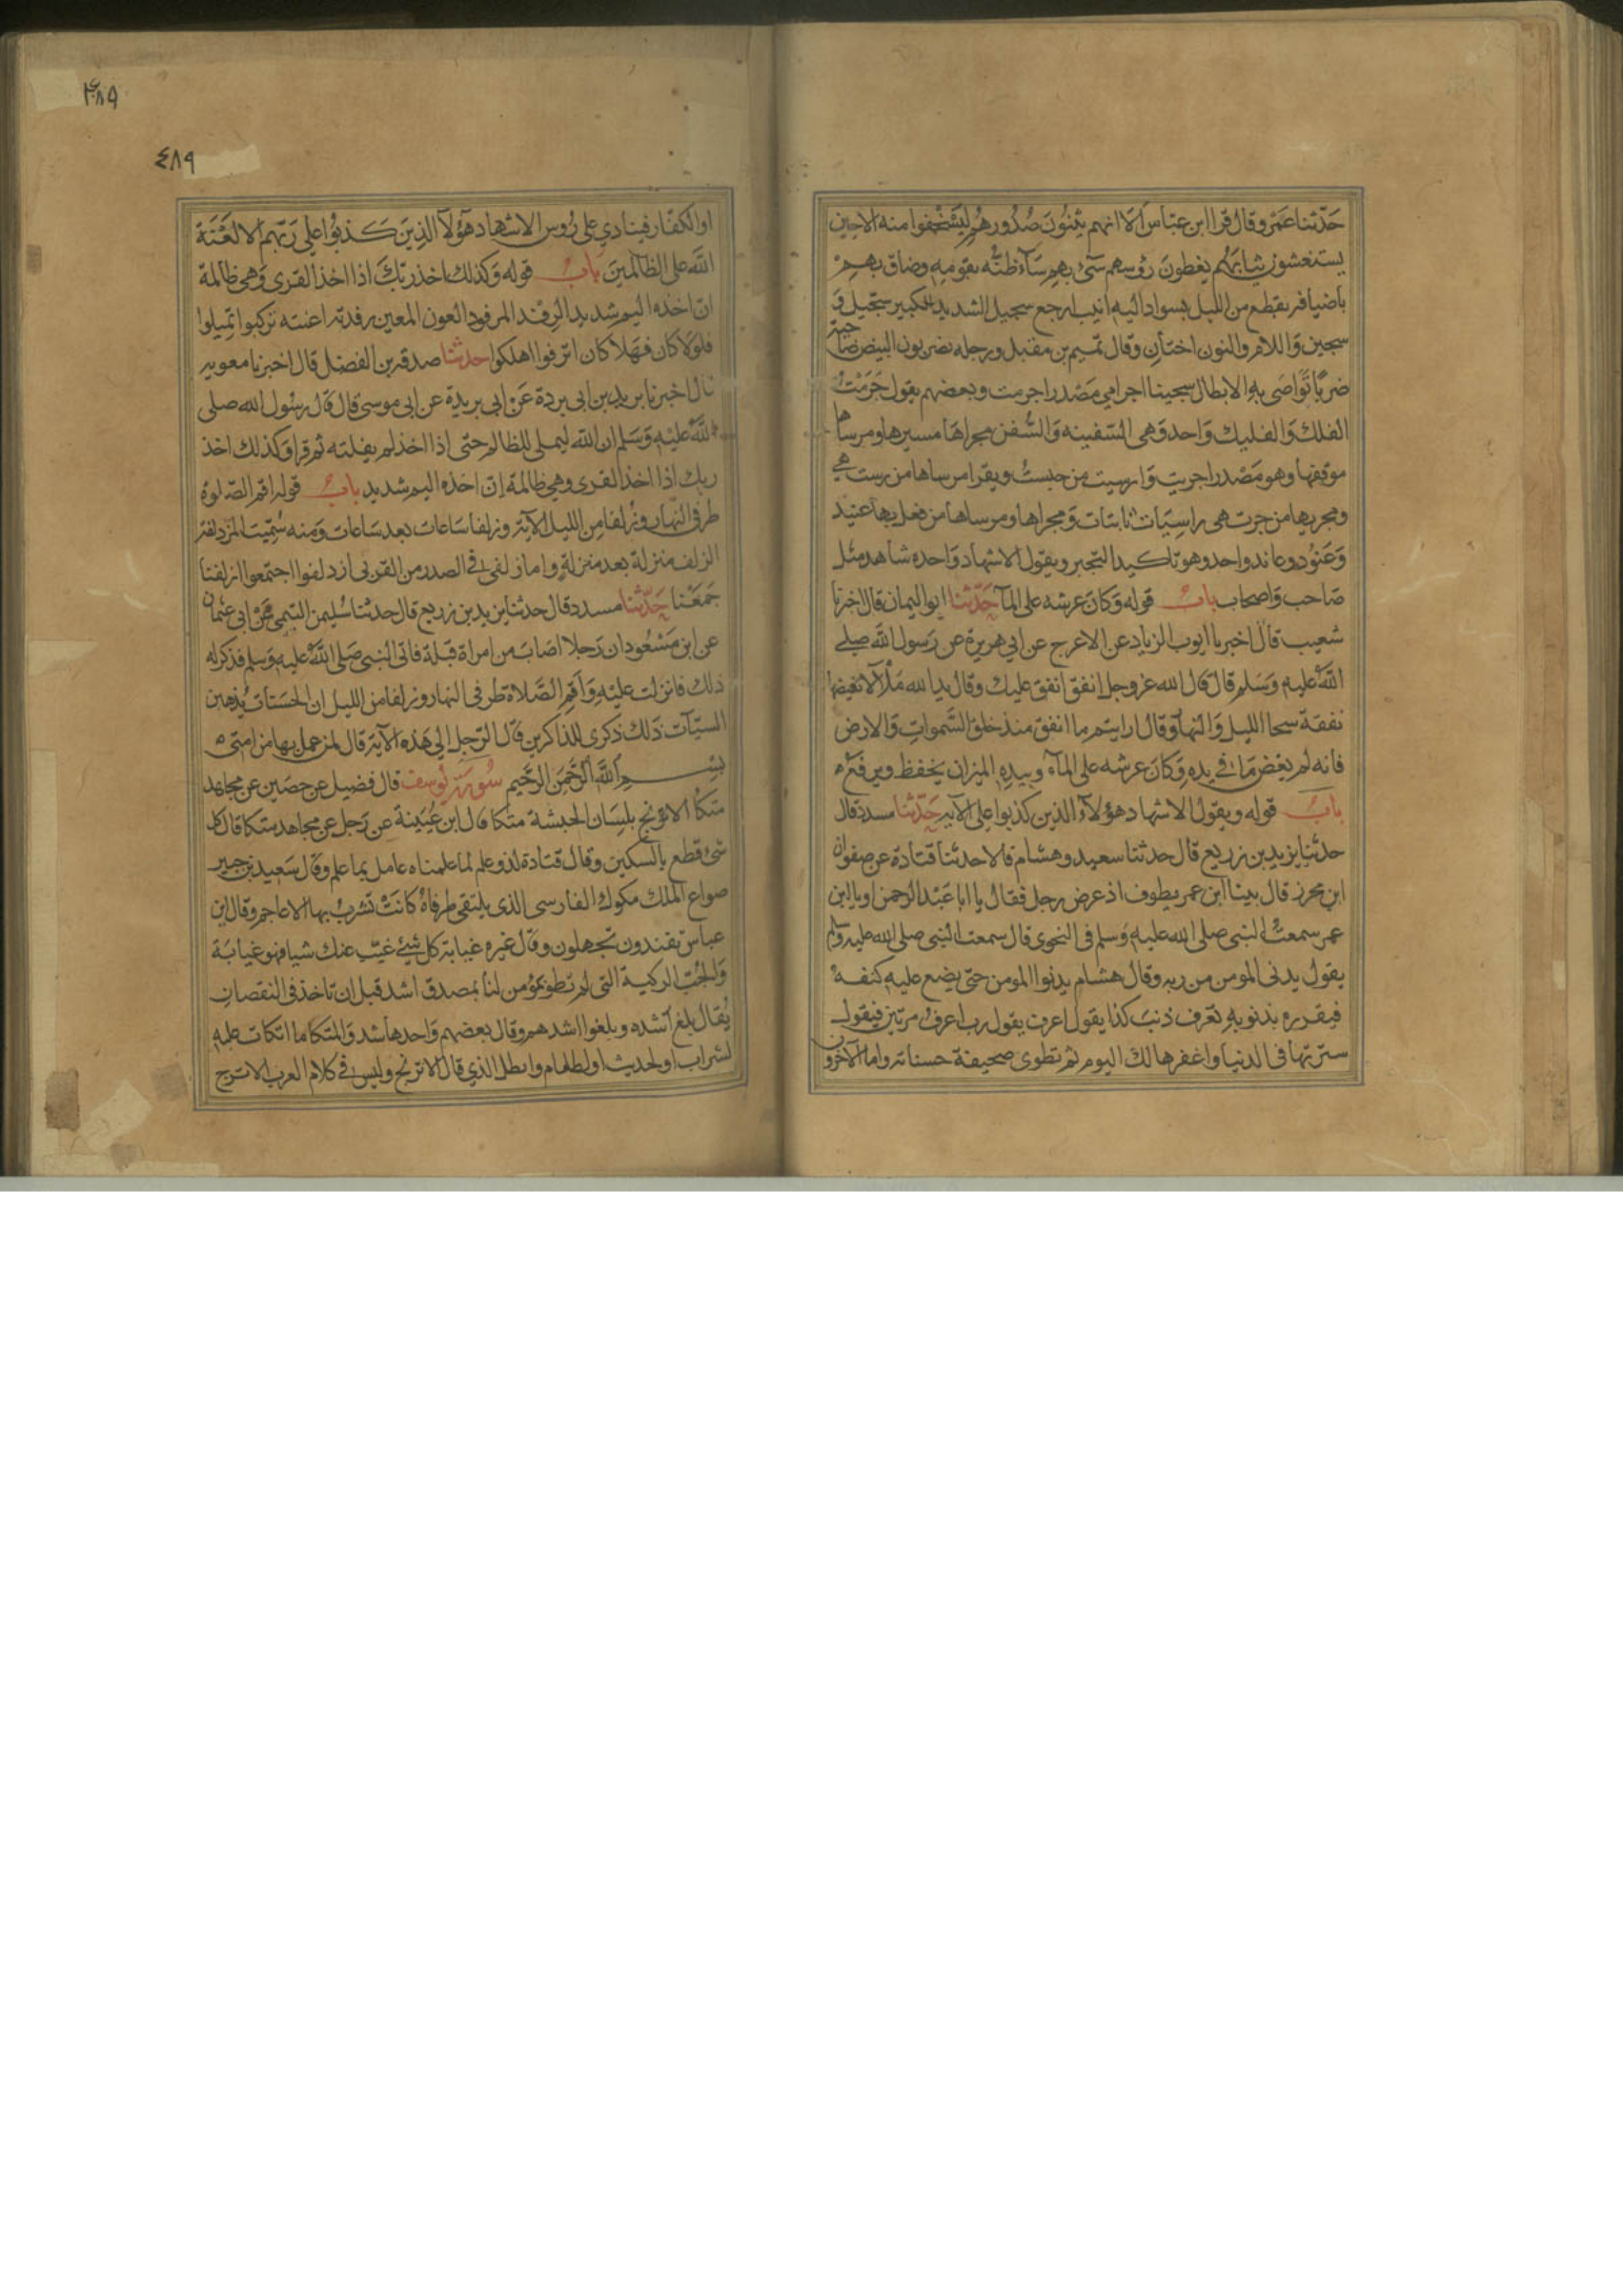 حدثنا عمرو قال قرا ابن عباس الا انهم يثنون صدورهم ليستخفوا منه الا حين
يستغشون ثيابهم يغطون رؤسهم سئ بهم ساء ظنه بقومه وضاق بهم
باضيافه بقطع من الليل بسواد اليه انيب ارجع سجيل الشديد الكبير سجيل و
سجين واللام والنون اختان وقال تميم بن مقبل ورجله يضربون البيض ضاحية
ضربًا تواصى به الابطال سجينا اجرامي مصدر اجرمت وبعضهم يقول جرمت
الفلك والفليك واحد وهي السفينه والسفن مجراها مسيرها ومرساها
موقفها وهو مصدر اجريت وارسيت من حبست ويقرا مرساها من رست هي
ومجريها من جرت هي راسيات ثابتات ومجراها ومرساها من فعل بها عنيد
وعنود وعاند واحد وهو تاكيد التجبر ويقول الاشهاد واحده شاهد مثل
صاحب واصحاب باب قوله وكان عرشه على المآ حدثنا ابو اليمان قال اخبرنا
شعيب قال اخبرنا ابوب الزياد عن الاعرج عن ابي هريرة عن رسول الله صلى
الله عليه وسلم قال قال الله عز وجل انفق انفق عليك وقال يد الله ملأ لا تغيضها
نفقة سحا الليل والنهار وقال ارايتم ما انفق منذ خلق السموات والارض
فانه لم يغض ما في يده وكان عرشه على المآء وبيده الميزان يخفظ ويرفع
باب قوله ويقول الاشهاد هؤلاء الذين كذبوا على الآية حدثنا مسدد قال
حدثنا يزيد بن زريع قال حدثنا سعيد وهشام قالا حدثنا قتادة عن صفوان
ابن محرز قال بينا ابن عمر يطوف اذ عرض رجل فقال يا ابا عبد الرحمن او يا ابن
عمر سمعت النبى صلى الله عليه وسلم فى النجوى قال سمعت النبى صلى الله عليه وسلم
يقول يدنى المومن من ربه وقال هشام يدنوا المومن حتى يضع عليه كنفه
فيقرره بذنوبه تعرف ذنب كذا يقول اعرف يقول رب اعرف مرتين فيقول
سترتها فى الدنيا واغفرها لك اليوم ثم تطوى صحيفة حسناته واما الآخرون
٤٨٩
٤٨٩
او الكفار فينادي على رؤس الاشهاد هؤلآ الذين كذبوا على ربهم الا لعنة
الله على الظالمين باب قوله وكذلك اخذ ربك اذا اخذ القرى وهى ظالمة
ان اخذه اليم شديد الرفد المرفود العون المعين رفدته اعنته تركبوا تميلوا
فلولا كان فهلا كان اترفوا اهلكوا حدثنا صدقه بن الفضل قال اخبرنا معويه
قال اخبرنا بريد بن ابى بردة عن ابى بريدة عن ابى موسى قال قال رسول الله صلى
الله عليه وسلم ان الله ليملى للظالم حتى اذا اخذ لم يفلته ثم قرا وكذلك اخذ
ربك اذا اخذ القرى وهي ظالمة ان اخذه اليم شديد باب قوله اقم الصلوة
طرفى النهار وزلفا من الليل الآية وزلفا ساعات بعد ساعات ومنه سميت المزدلفة
الزلف منزلة بعد منزلة واما زلفى فى الصدر من القربى ازدلفوا اجتمعوا ازلفنا
جمعنا حدثنا مسدد قال حدثنا يزيد بن زريع قال حدثنا سليمن التيمى عن ابى عثمان
عن ابن مسعود ان رجلا اصاب من امراة قبلة فاتى النبى صلى الله عليه وسلم فذكر له
ذلك فانزلت عليه واقم الصلاة طرفى النهار وزلفا من الليل ان الحسنات يذهبن
السيآت ذلك ذكرى للذاكرين قال الرجل الى هذه الآية قال لمن عمل بها من امتى
بسم الله الرحمن الرحيم سورة يوسف قال فضيل عن حصين عن مجاهد
متكا الاترنج بلسان الحبشة متكا قال ابن عيينة عن رجل عن مجاهد متكا قال كل
شئ قطع بالسكين وقال قتادة لذو علم لما علمناه عامل بما علم وقال سعيد بن جبير
صواع الملك مكوك الفارسى الذى يلتقى طرفاه كانت تشرب بها الاعاجم وقال ابن
عباس تفندون تجهلون وقال غيره غيابة كل شئ غيب عنك شيا فهو غيابة
والجب الركية التى لم تطو بمؤمن لنا بمصدق اشده قبل ان تاخذ فى النقصان
يقال بلغ اشده وبلغوا اشدهم وقال بعضهم واحدها شد والمتكا ما اتكات عليه
لشراب او لحديث او لطعام وابطل الذي قال الاترنج وليس فى كلام العرب الاترج